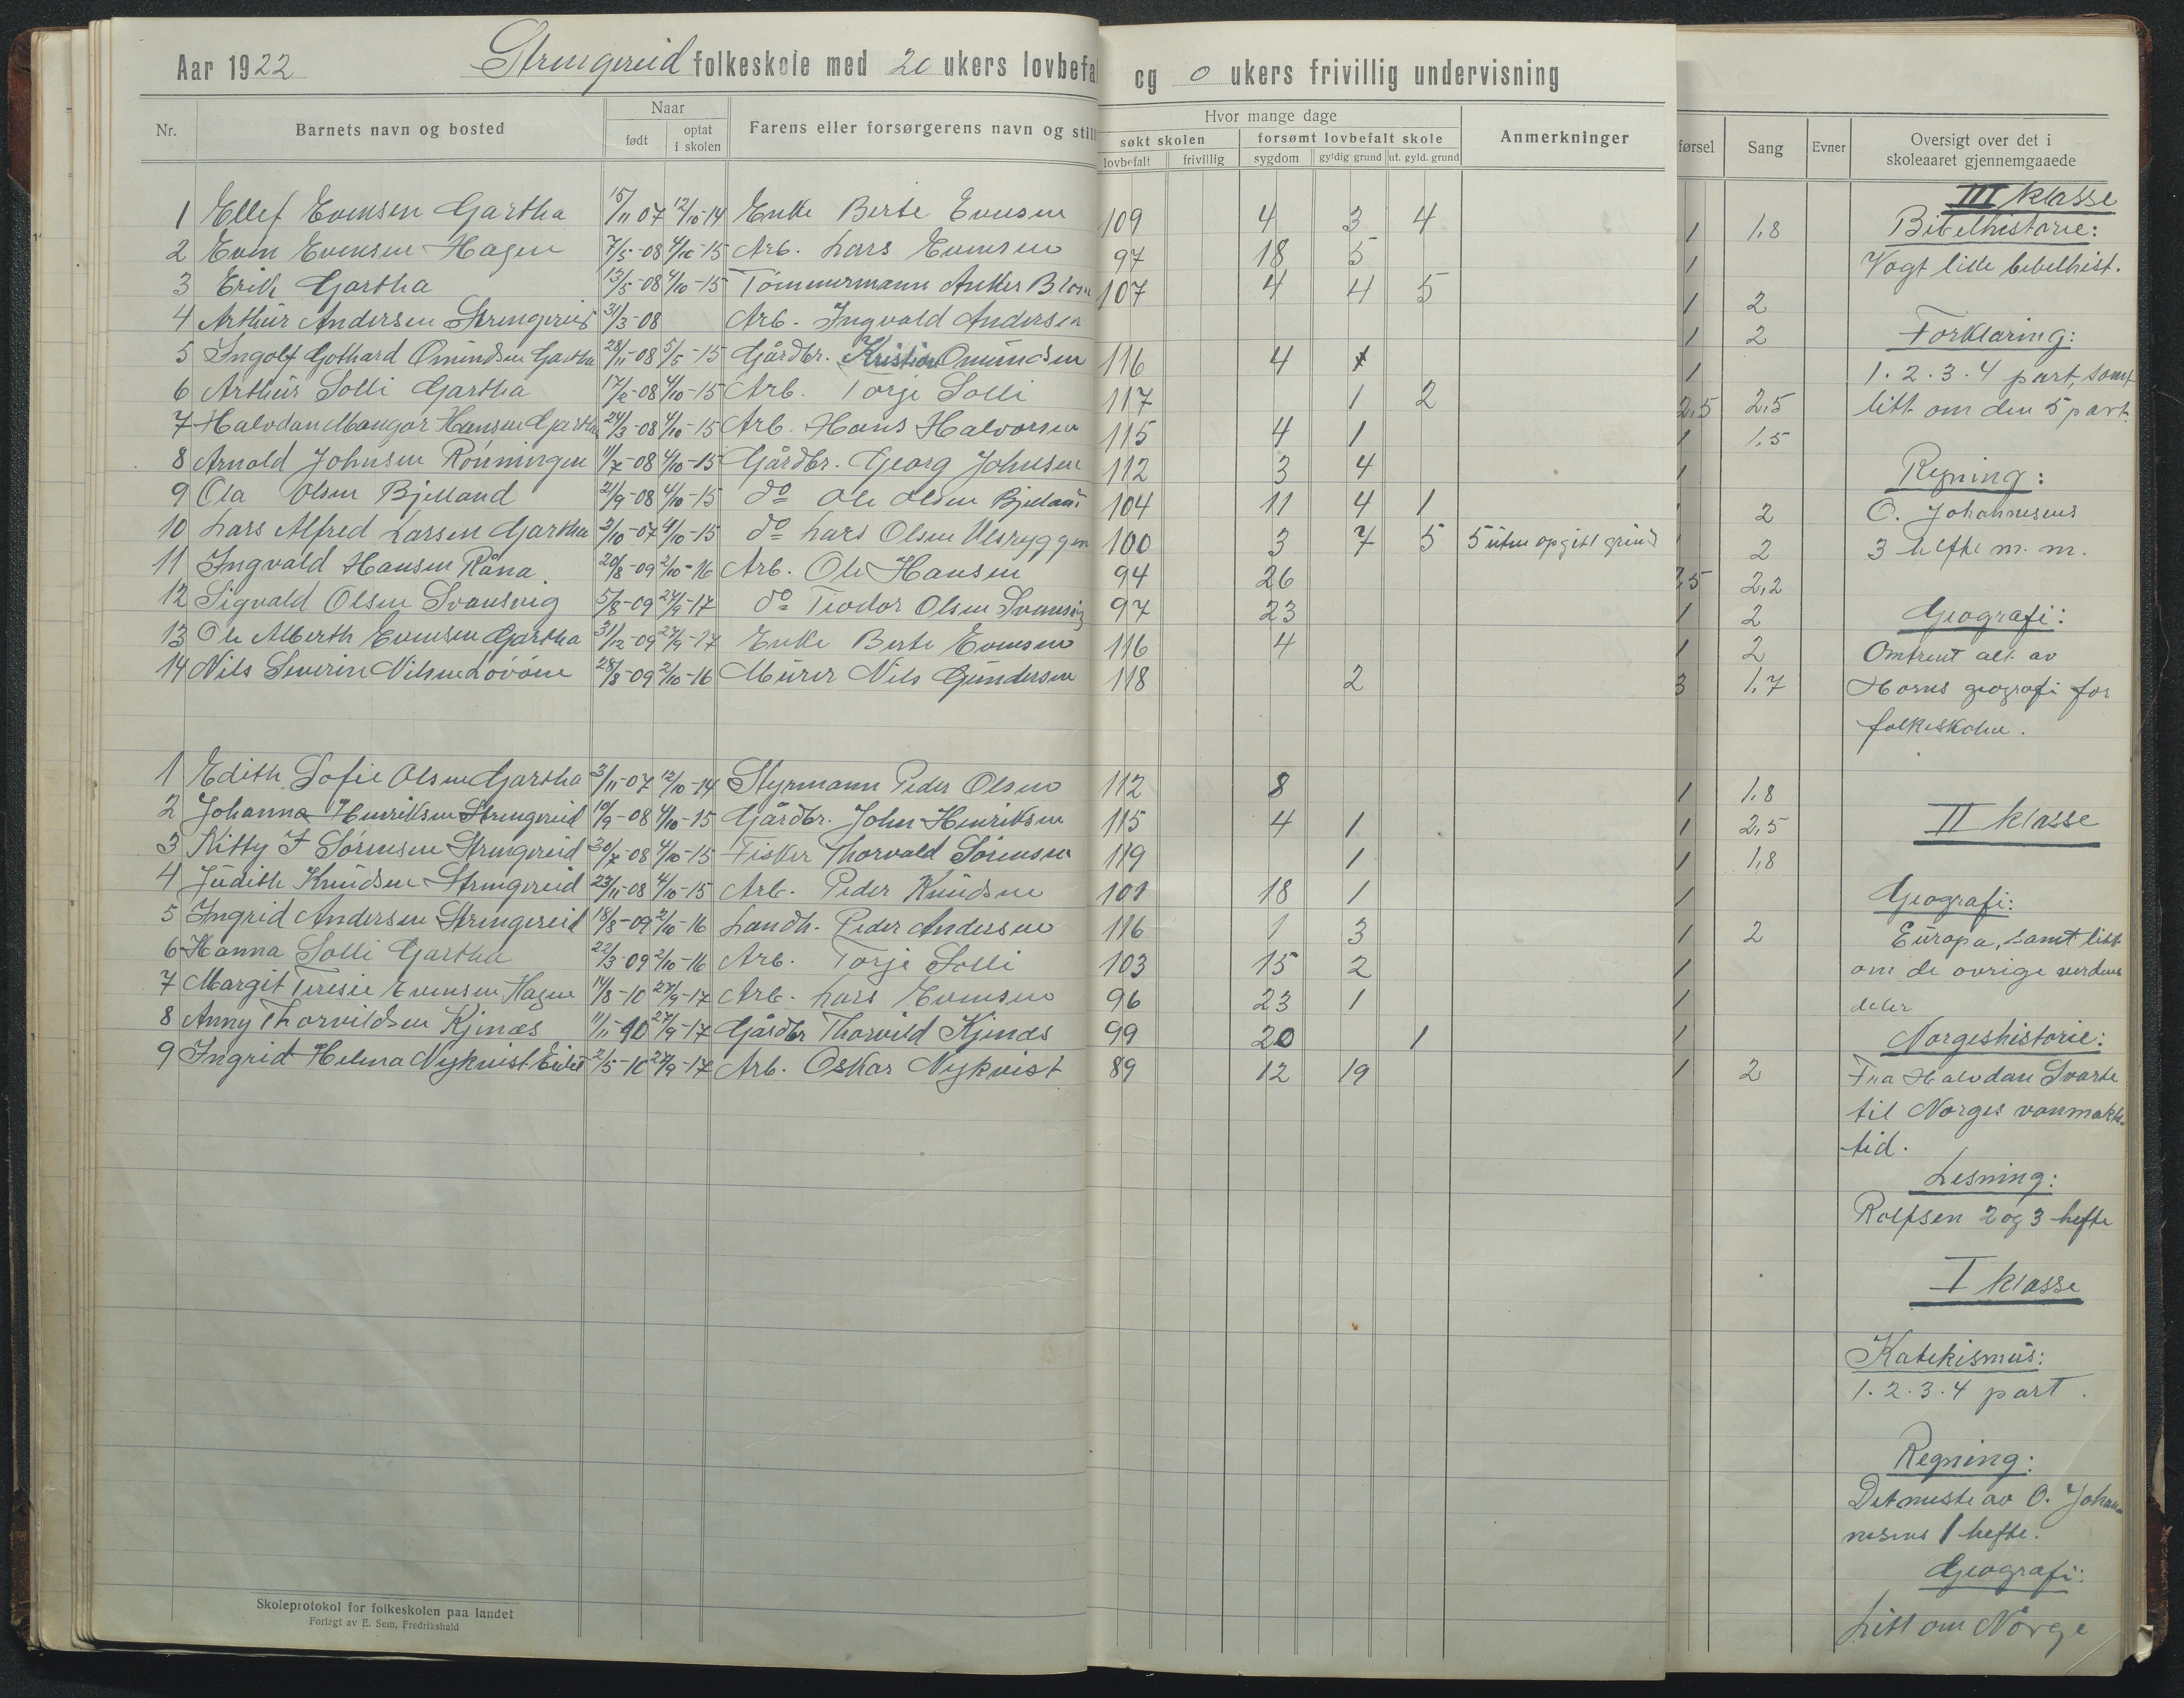 Aar 1922 Strengereid folkeskole med 20 ukers lovbefa og 0 ukers frivillig undervisning
Nr. Barnets navn og bosted Naar født optat i skolen Farens eller forsørgerens navn og still
Hvor mange dage
søkt skolen forsømt lovbefalt skole Anmerkninger
lovbefalt frivillig sygdom gyldig grund ut. gyld. grund
førsel Sang Evner Oversigt over det i skoleaaret gjennemgaaede
1 Ellef Evensen Gartha 15/11 07 12/10-14 Enke Berte Evensen 109 4 3 4
2 Even Evensen Hagen 7/5-08 4/10-15 Arb. Lars Evensen 97 18 5
3 Erik Gartha 13/5-08 4/10-15 Tömmermann Anker Blom 107 4 4 5
4 Arthur Andersen Strengereid 31/3-08 Arb. Ingvald Andersen
5 Ingolf Gothard Omundsen Gartha 28/11-08 5/5-15 Gårdbr. Kristian Omundsen 116 4
6 Arthur Solli Gartha 17/2-08 4/10-15 Arb. Torje Solli 117 1 2
7 Halvdan Mangor Hansen Gartha 24/3-08 4/10-15 Arb. Hans Halvorsen 115 4 1
8 Arnold Johnsen Rönningen 11/7-08 4/10-15 Gårdbr. Georg Johnsen 112 3 4
9 Ola Olsen Bjelland 21/9-08 4/10-15 do Ole Olsen Bjelland 104 11 4 1
10 Lars Alfred Larsen Gartha 3/10-07 4/10-15 do Lars Olsen Vesryggen 100 3 7 5 5 uten opgitt grund
11 Ingvald Hansen Råna 20/8-09 2/10-16 Arb. Ole Hansen 94 26
12 Sigvald Olsen Svansvig 5/8-09 27/9-17 do Teodor Olsen Svansvig 97 23
13 Ole Alberth Evensen Gartha 31/12-09 27/9-17 Enke Berte Evensen 116 4
14 Nils Severin Nilsen Lövöen 28/8-09 2/10-16 Murer Nils Gundersen 118 2
1 Edith Sofie Olsen Gartha 3/11-07 12/10-14 Styrmann Peder Olsen 112 8
2 Johanna Henriksen Strengereid 10/9-08 4/10-15 Gårdbr. John Henriksen 115 4 1
3 Kitty J Sörensen Strengereid 30/7-08 4/10-15 Fisker Thorvald Sörensen 119 1
4 Judith Knudsen Strengereid 23/11-08 4/10-15 Arb. Peder Knudsen 101 18 1
5 Ingrid Andersen Strengereid 18/8-09 2/10-16 Landh. Peder Andersen 116 1 3
6 Hanna Solli Gartha 22/3-09 2/10-16 Arb. Torje Solli 103 15 2
7 Margit Teresie Evensen Hagen 14/8-10 27/9-17 Arb. Lars Evensen 96 23 1
8 Anny Thorvildsen Kjenæs 11/11-10 27/9-17 Gårdbr Thorvild Kjenæs 99 20 1
9 Ingrid Helena Nykvist 2/5-10 27/9-17 Arb. Oskar Nykvist 89 12 19
1 1,8
1
1 2
1 2
1
2,5 2,5
1 1,5
1
2
1 2
2,5 2,2
1 2
1 2
3 1,7
1 1,8
1 2,5
1 1,8
1
1 2
1
1
1
1 2
III klasse
Bibelhistorie:
Vogt lille bibelhist.
Forklaring:
1. 2. 3. 4 part, samt
litt om den 5 part.
Regning:
O. Johannesens
3 hefte m. m.
Geografi:
Omtrent alt av
Horns geografi for
folkeskolen.
II klasse
Geografi:
Europa, samt litt
om de øvrige verdens
deler
Norgeshistorie:
Fra Halvdan Svarte
til Norges vanmakts-
tid.
Lesning:
Rolfsen 2 og 3 hefte
I klasse
Katekismus:
1. 2. 3. 4 part.
Regning:
Det meste av O. Johan-
nesens 1 hefte.
Geografi:
Litt om Norge
Skoleprotokol for folkeskolen paa landet
Forlagt av E. Sem, Fredrikshald